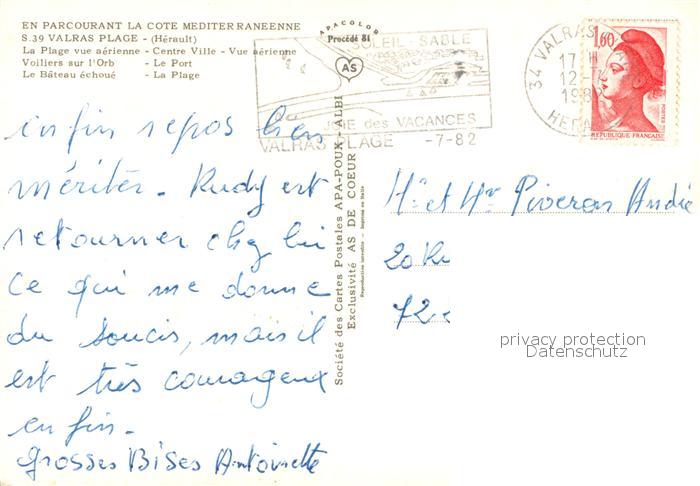 EN PARCOURANT LA COTE MEDITERRANEENNE
S.39 VALRAS PLAGE - (Hérault)
La Plage vue aérienne - Centre Ville - Vue aérienne
Voiliers sur l'Orb - Le Port
Le Bâteau échoué - La Plage
APACOLOR
Procédé 81
AS
SOLEIL SABLE
JOIE des VACANCES
VALRAS PLAGE -7-82
34 VALRAS
17 H
12-
198
HERAULT
1,60
POSTES
REPUBLIQUE FRANÇAISE
en fin repos bien
méritér. Rudy est
retourner chez lui
Ce qui me donne
du soucis, mais il
est très courageux
en fin.
Grosses Bises Antoinette
Société des Cartes Postales APA-POUX - ALBI
Exclusivité AS DE COEUR
Reproduction interdite - Imprimé en Italie
Me et Mr Piveron André
20 Rue
72
privacy protection
Datenschutz